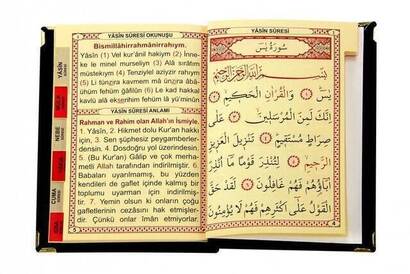 YÂSÎN SÛRESİ OKUNUŞU
Bismillâhirrahmânirrahıym.
(1) Vel kur'ânil hakiym (2) İnne-
ke le minel murseliyn (3) Alâ sırâtım
müstekıym (4) Tenziylel aziyzir rahıym
(5) Li tünzira kavmem mâ ünzira
âbâühüm fehüm gâfilûn (6) Le kad hakkal
kavlü alâ ekserihim fehüm lâ yü'minûn
YÂSÎN SÛRESİ ANLAMI
Rahman ve Rahim olan Allah'ın İsmiyle.
1. Yâsîn, 2. Hikmet dolu Kur'an hakkı
için, 3. Sen şüphesiz peygamberler-
densin. 4. Dosdoğru yol üzerindesin.
5. (Bu Kur'an) Gâlip ve çok merha-
metli Allah tarafından indirilmiştir. 6.
Babaları uyarılmamış, bu yüzden
kendileri de gaflet içinde kalmış bir
toplumu uyarman için indirilmiş-
tir. 7. Yemin olsun ki onların çoğu
gafletlerinin cezasını hak etmişler-
dir. Çünkü onlar îman etmiyorlar.
5
YÂSÎN
NEBE
CUMA
YÂSÎN SÛRESİ
سُورَةُ يٰسٓ
بِسْمِ اللّٰهِ الرَّحْمٰنِ الرَّحِيمِ
يٰسٓ ﴿١﴾ وَالْقُرْاٰنِ الْحَكِيمِ ﴿٢﴾
اِنَّكَ لَمِنَ الْمُرْسَلِينَ ﴿٣﴾ عَلٰى
صِرَاطٍ مُسْتَقِيمٍ ﴿٤﴾ تَنْزِيلَ الْعَزِيزِ
الرَّحِيمِ ﴿٥﴾ لِتُنْذِرَ قَوْمًا مَا اُنْذِرَ
اٰبَاؤُهُمْ فَهُمْ غَافِلُونَ ﴿٦﴾ لَقَدْ حَقَّ
الْقَوْلُ عَلٰى اَكْثَرِهِمْ فَهُمْ لَا يُؤْمِنُونَ
4